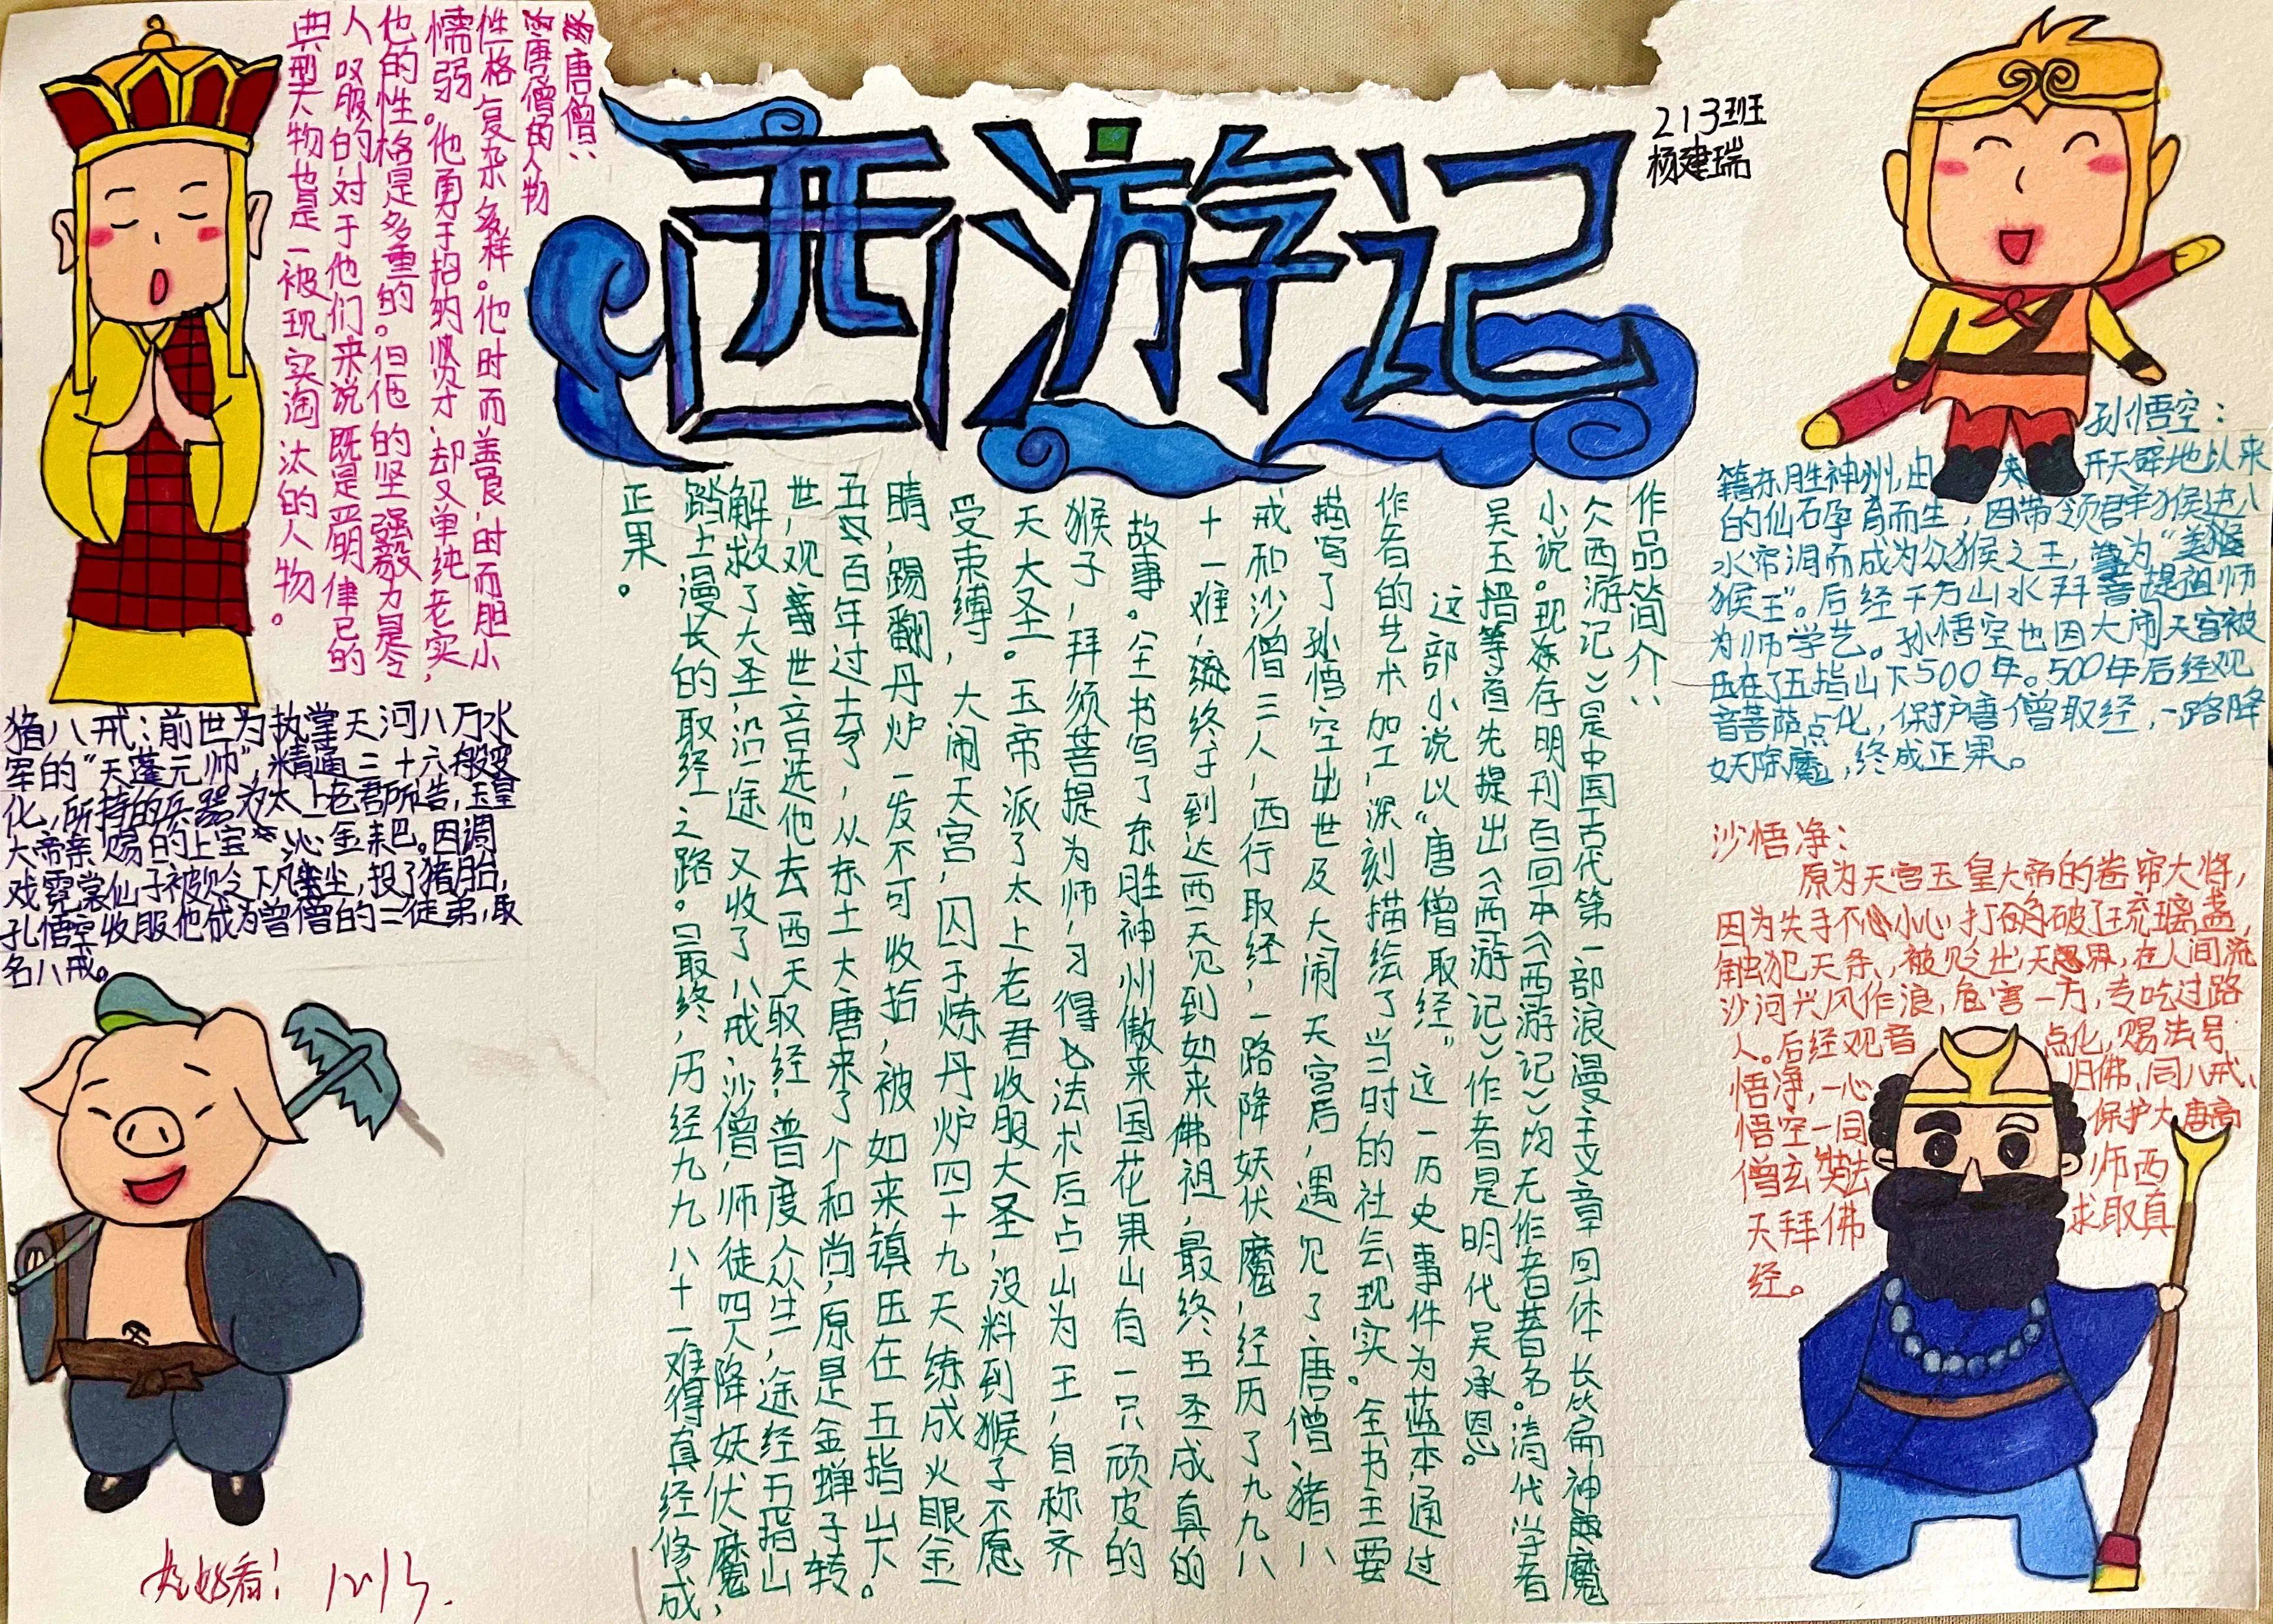 西游记
213班
杨建瑞
唐僧:
唐僧的人物
性格复杂多样。他时而善良,时而胆小
懦弱。他勇于招纳贤才,却又单纯老实,
他的性格是多重的。但他的坚强毅力是令
人叹服的,对于他们来说既是严明律己的
典型人物也是一被现实淘汰的人物。
猪八戒:前世为执掌天河八万水
军的“天蓬元帅”,精通三十六般变
化,所持的兵器为太上老君所造,玉皇
大帝亲赐的上宝沁金耙。因调
戏霓裳仙子被贬下凡尘,投了猪胎,
孔悟空收服他成为曾僧的二徒弟,取
名八戒。
作品简介:
《西游记》是中国古代第一部浪漫主义章回体长篇神魔
小说。现存明刊百回本《西游记》均无作者著名。清代学者
吴玉搢等首先提出《西游记》作者是明代吴承恩。
这部小说以“唐僧取经”这一历史事件为蓝本,通过
作者的艺术加工,深刻描绘了当时的社会现实。全书主要
描写了孙悟空出世及大闹天宫后,遇见了唐僧、猪八
戒和沙僧三人,西行取经,一路降妖伏魔,经历了九九八
十一难,终于到达西天见到如来佛祖,最终五圣成真的
故事。全书写了东胜神州傲来国花果山有一只顽皮的
猴子,拜须菩提为师,习得七法术后占山为王,自称齐
天大圣。玉帝派了太上老君收服大圣,没料到猴子不愿
受束缚,大闹天宫,囚于炼丹炉四十九天练成火眼金
睛,踢翻丹炉一发不可收拾,被如来镇压在五指山下。
五百年过去了,从东土大唐来了个和尚,原是金蝉子转
世,观音世音选他去西天取经,普度众生,途经五指山
解救了大圣,沿途又收了八戒、沙僧,师徒四人降妖伏魔,
踏上漫长的取经之路。最终,历经九九八十一难得真经修成
正果。
孙悟空:
籍东胜神州,由 来 开天辟地以来
的仙石孕育而生,因带领群猴进入
水帘洞而成为众猴之王,尊为“美猴
猴王”。后经千万山水拜菩提祖师
为师学艺。孙悟空也因大闹天宫被
压在了五指山下500年。500年后经观
音菩萨点化,保护唐僧取经,一路降
妖除魔,终成正果。
沙悟净:
原为天宫玉皇大帝的卷帘大将,
因为失手不小心打破了琉璃盏,
触犯天条,被贬出天界,在人间流
沙河兴风作浪,危害一方,专吃过路
人。后经观音 点化,赐法号
悟净,一心 归佛,同八戒、
悟空一同 保护大唐高
僧玄奘去 师西
天拜佛 求取真
经。
好看!